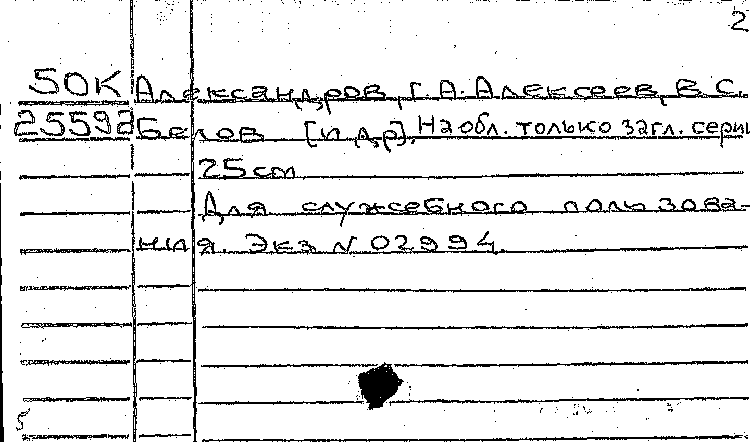 2
50К Александров, Г. А. Алексеев, В. С.
25592 Белов [и др]. На обл. только загл. серии
25 см
Для служебного пользова-
ния. Экз № 02994.
5